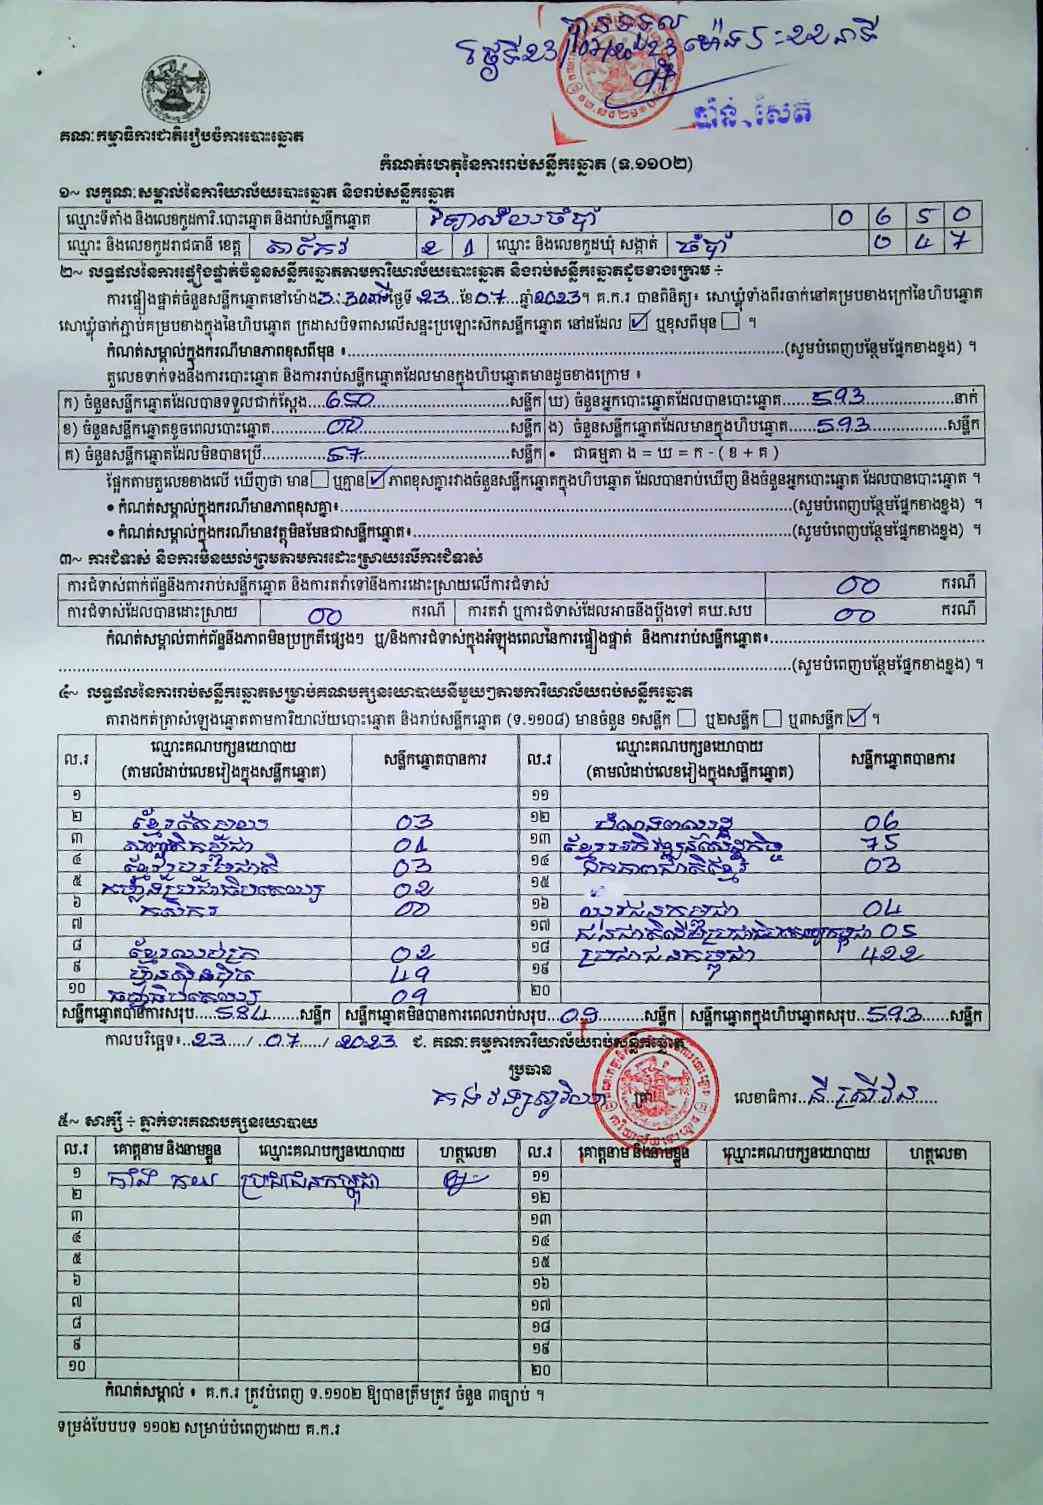 បានទទួល
ថ្ងៃទី23/07/2023 ម៉ោង5:22នាទី
ចាន់ សែត
គណៈកម្មាធិការជាតិរៀបចំការបោះឆ្នោត
កំណត់ហេតុនៃការរាប់សន្លឹកឆ្នោត (ទ.១១០២)
១~ លក្ខណៈសម្គាល់នៃការិយាល័យបោះឆ្នោត និងរាប់សន្លឹកឆ្នោត
ឈ្មោះទីតាំង និងលេខកូដការិ.បោះឆ្នោត និងរាប់សន្លឹកឆ្នោត វិទ្យាល័យចំប៉ា 0 6 5 0
ឈ្មោះ និងលេខកូដរាជធានី ខេត្ត តាកែវ 2 1 ឈ្មោះ និងលេខកូដឃុំ សង្កាត់ ចំប៉ា 0 4 7
២~ លទ្ធផលនៃការផ្ទៀងផ្ទាត់ចំនួនសន្លឹកឆ្នោតតាមការិយាល័យបោះឆ្នោត និងរាប់សន្លឹកឆ្នោតដូចខាងក្រោម ÷
ការផ្ទៀងផ្ទាត់ចំនួនសន្លឹកឆ្នោតនៅម៉ោង3:30នាទីថ្ងៃទី 23...ខែ07...ឆ្នាំ2023។ គ.ក.រ បានពិនិត្យ៖ សោឃ្លុំទាំងពីរចាក់នៅគម្របខាងក្រៅនៃហិបឆ្នោត
សោឃ្លុំចាក់ភ្ជាប់គម្របខាងក្នុងនៃហិបឆ្នោត ក្រដាសបិទពាសលើសន្ទះប្រឡោះស៊កសន្លឹកឆ្នោត នៅដដែល ☑ ឬខុសពីមុន ☐ ។
កំណត់សម្គាល់ក្នុងករណីមានភាពខុសពីមុន ៖...(សូមបំពេញបន្ថែមផ្នែកខាងខ្នង) ។
តួលេខទាក់ទងនឹងការបោះឆ្នោត និងការរាប់សន្លឹកឆ្នោតដែលមានក្នុងហិបឆ្នោតមានដូចខាងក្រោម ៖
ក) ចំនួនសន្លឹកឆ្នោតដែលបានទទួលជាក់ស្តែង....650...សន្លឹក ឃ) ចំនួនអ្នកបោះឆ្នោតដែលបានបោះឆ្នោត......593...នាក់
ខ) ចំនួនសន្លឹកឆ្នោតខូចពេលបោះឆ្នោត...00...សន្លឹក ង) ចំនួនសន្លឹកឆ្នោតដែលមានក្នុងហិបឆ្នោត......593...សន្លឹក
គ) ចំនួនសន្លឹកឆ្នោតដែលមិនបានប្រើ...57...សន្លឹក • ជាធម្មតា ង = ឃ = ក - ( ខ + គ )
ផ្អែកតាមតួលេខខាងលើ ឃើញថា មាន☐ ឬគ្មាន☑ ភាពខុសគ្នារវាងចំនួនសន្លឹកឆ្នោតក្នុងហិបឆ្នោត ដែលបានរាប់ឃើញ និងចំនួនអ្នកបោះឆ្នោត ដែលបានបោះឆ្នោត ។
• កំណត់សម្គាល់ក្នុងករណីមានភាពខុសគ្នា៖...(សូមបំពេញបន្ថែមផ្នែកខាងខ្នង) ។
• កំណត់សម្គាល់ក្នុងករណីមានវត្ថុមិនមែនជាសន្លឹកឆ្នោត៖...(សូមបំពេញបន្ថែមផ្នែកខាងខ្នង) ។
៣~ ការជំទាស់ និងការមិនយល់ព្រមតាមការដោះស្រាយលើការជំទាស់
ការជំទាស់ពាក់ព័ន្ធនឹងការរាប់សន្លឹកឆ្នោត និងការតវ៉ាទៅនឹងការដោះស្រាយលើការជំទាស់ 00 ករណី
ការជំទាស់ដែលបានដោះស្រាយ 00 ករណី ការតវ៉ា ឬការជំទាស់ដែលអាចនឹងប្តឹងទៅ គឃ.សប 00 ករណី
កំណត់សម្គាល់ពាក់ព័ន្ធនឹងភាពមិនប្រក្រតីផ្សេងៗ ឬ/និងការជំទាស់ក្នុងអំឡុងពេលនៃការផ្ទៀងផ្ទាត់ និងការរាប់សន្លឹកឆ្នោត៖...
...(សូមបំពេញបន្ថែមផ្នែកខាងខ្នង) ។
៤~ លទ្ធផលនៃការរាប់សន្លឹកឆ្នោតសម្រាប់គណបក្សនយោបាយនីមួយៗតាមការិយាល័យរាប់សន្លឹកឆ្នោត
តារាងកត់ត្រាសំឡេងឆ្នោតតាមការិយាល័យបោះឆ្នោត និងរាប់សន្លឹកឆ្នោត (ទ.១១០៨) មានចំនួន ១សន្លឹក ☐ ឬ២សន្លឹក ☐ ឬ៣សន្លឹក ☑ ។
ល.រ ឈ្មោះគណបក្សនយោបាយ (តាមលំដាប់លេខរៀងក្នុងសន្លឹកឆ្នោត) សន្លឹកឆ្នោតបានការ ល.រ ឈ្មោះគណបក្សនយោបាយ (តាមលំដាប់លេខរៀងក្នុងសន្លឹកឆ្នោត) សន្លឹកឆ្នោតបានការ
១ ១១
២ ខ្មែរតែមួយ 03 ១២ សំណងពលរដ្ឋ 06
៣ សញ្ជាតិកម្ពុជា 01 ១៣ ខ្មែរអភិវឌ្ឍន៍សេដ្ឋកិច្ច 75
៤ ខ្មែររួបរួមជាតិ 03 ១៤ ឯកភាពជាតិខ្មែរ 03
៥ កម្លាំងប្រជាធិបតេយ្យ 02 ១៥
៦ កសិករ 00 ១៦ យុវជនកម្ពុជា 04
៧ ១៧ ជនជាតិដើមប្រជាធិបតេយ្យកម្ពុជា 05
៨ ខ្មែរឈប់ក្រ 02 ១៨ ប្រជាជនកម្ពុជា 422
៩ ហ៊្វុនស៊ិនប៉ិច 49 ១៩
១០ ធម្មាធិបតេយ្យ 09 ២០
សន្លឹកឆ្នោតបានការសរុប....584......សន្លឹក សន្លឹកឆ្នោតមិនបានការពេលរាប់សរុប...09...សន្លឹក សន្លឹកឆ្នោតក្នុងហិបឆ្នោតសរុប...593......សន្លឹក
កាលបរិច្ឆេទ៖..23..../..07...../..2023 ជ. គណៈកម្មការការិយាល័យរាប់សន្លឹកឆ្នោត
ប្រធាន
លេខាធិការ..នី ស្រីវ៉ន.....
៥~ សាក្សី ÷ ភ្នាក់ងារគណបក្សនយោបាយ
ល.រ គោត្តនាម និងនាមខ្លួន ឈ្មោះគណបក្សនយោបាយ ហត្ថលេខា ល.រ គោត្តនាម និងនាមខ្លួន ឈ្មោះគណបក្សនយោបាយ ហត្ថលេខា
១ ប្រជាជនកម្ពុជា ១១
២ ១២
៣ ១៣
៤ ១៤
៥ ១៥
៦ ១៦
៧ ១៧
៨ ១៨
៩ ១៩
១០ ២០
កំណត់សម្គាល់ ៖ គ.ក.រ ត្រូវបំពេញ ទ.១១០២ ឱ្យបានត្រឹមត្រូវ ចំនួន ៣ច្បាប់ ។
ទម្រង់បែបបទ ១១០២ សម្រាប់បំពេញដោយ គ.ក.រ